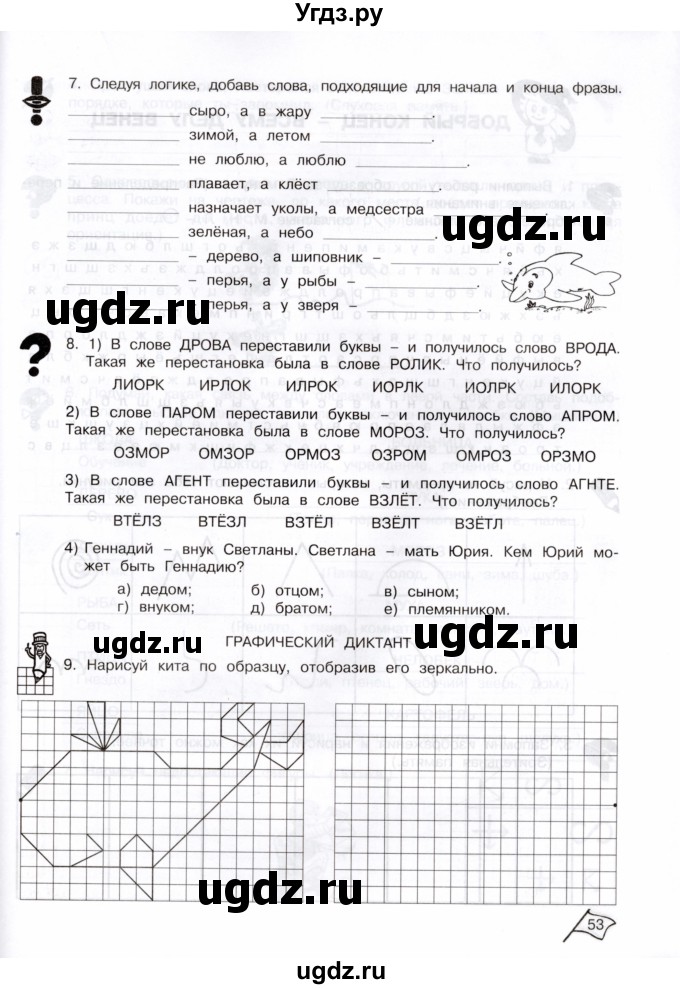 Угдз.ру
7. Следуя логике, добавь слова, подходящие для начала и конца фразы.
____________ сыро, а в жару ____________.
____________ зимой, а летом ____________.
____________ не люблю, а люблю ____________.
____________ плавает, а клёст ____________.
____________ назначает уколы, а медсестра ____________.
____________ зелёная, а небо ____________.
____________ – дерево, а шиповник – ____________.
____________ – перья, а у рыбы – ____________.
____________ – перья, а у зверя – ____________.
ugdz.ru
ugdz.ru
8. 1) В слове ДРОВА переставили буквы – и получилось слово ВРОДА.
Такая же перестановка была в слове РОЛИК. Что получилось?
ЛИОРК ИРЛОК ИЛРОК ИОРЛК ИОЛРК ИЛОРК
2) В слове ПАРОМ переставили буквы – и получилось слово АПРОМ.
Такая же перестановка была в слове МОРОЗ. Что получилось?
ОЗМОР ОМЗОР ОРМОЗ ОЗРОМ ОМРОЗ ОРЗМО
3) В слове АГЕНТ переставили буквы – и получилось слово АГНТЕ.
Такая же перестановка была в слове ВЗЛЁТ. Что получилось?
ВТЁЛЗ ВТЁЗЛ ВЗТЁЛ ВЗЁЛТ ВЗЁТЛ
4) Геннадий – внук Светланы. Светлана – мать Юрия. Кем Юрий мо-
жет быть Геннадию?
а) дедом; б) отцом; в) сыном;
г) внуком; д) братом; е) племянником.
ugdz.ru
ugdz.ru
ГРАФИЧЕСКИЙ ДИКТАНТ
9. Нарисуй кита по образцу, отобразив его зеркально.
ugdz.ru
53
ugdz.ru